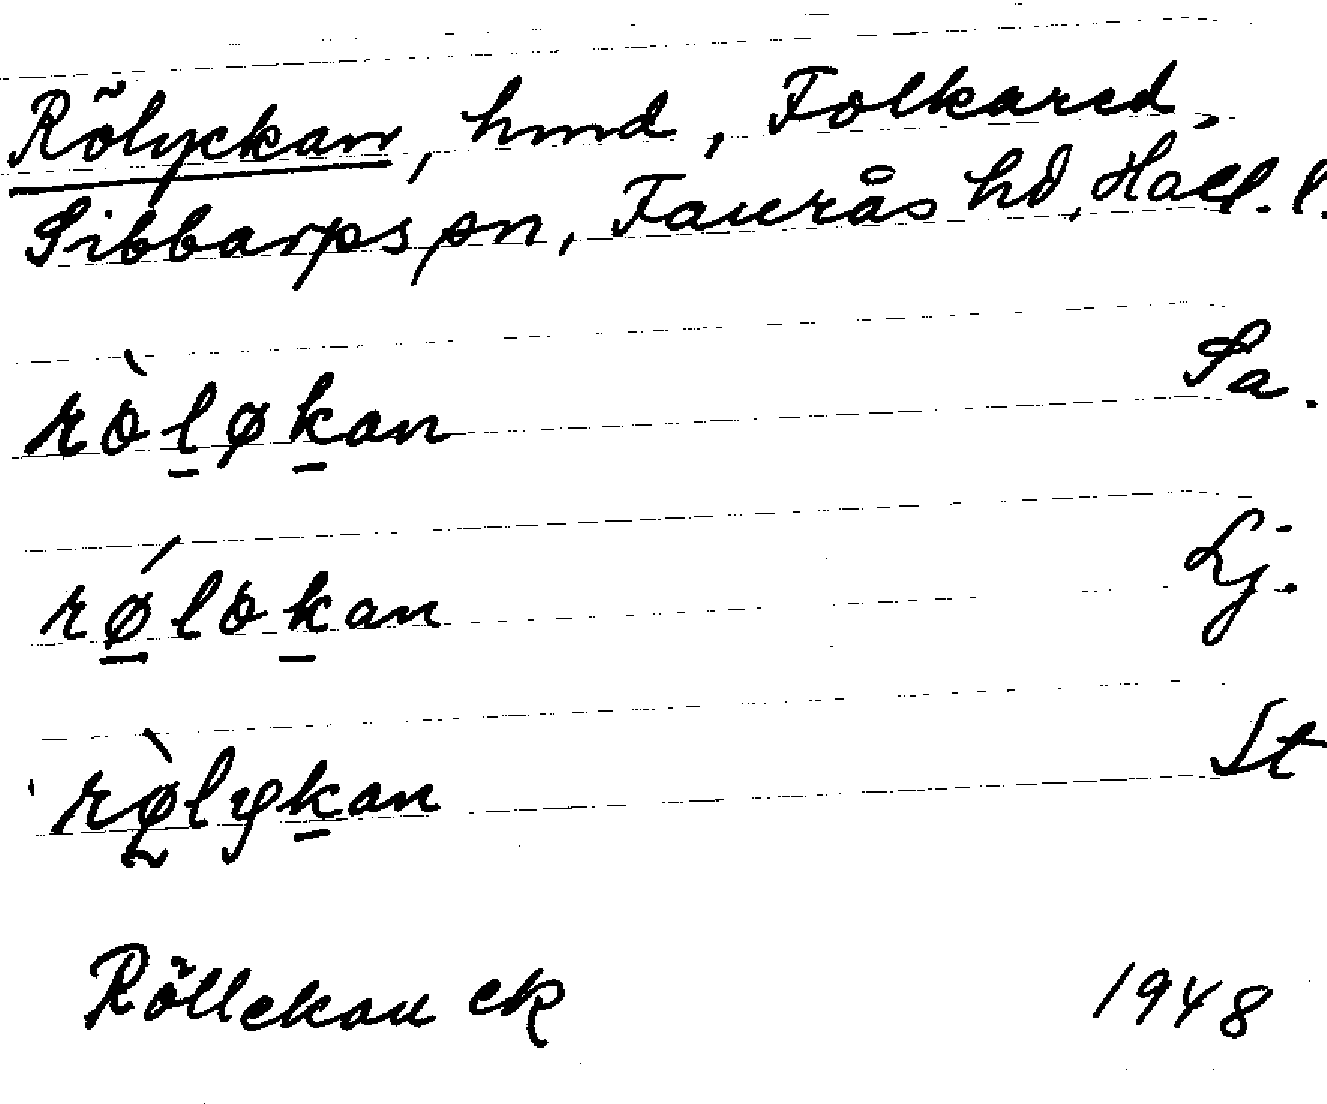 Rölyckan, hmd, Folkared,
Sibbarps sn, Faurås hd, Hall. l.
ròløkan Sa.
rǿlokan Lj.
rø̀lykan St
Röllekan ek 1948